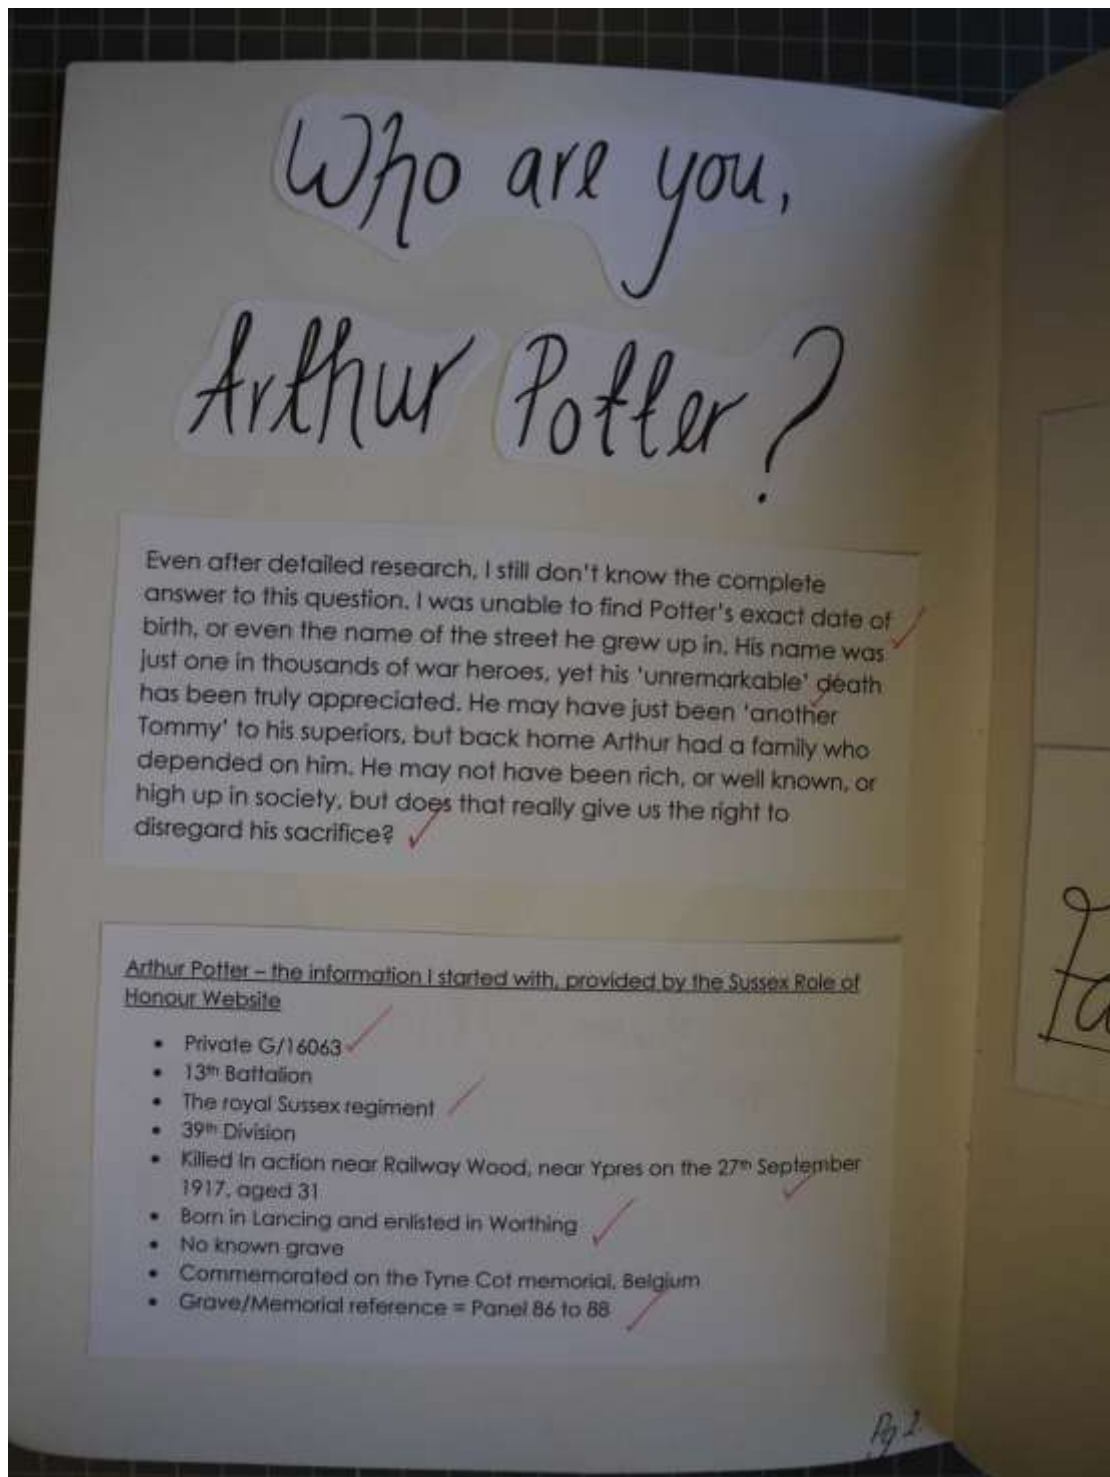 Who are you,
Arthur Potter?
Even after detailed research, I still don't know the complete
answer to this question. I was unable to find Potter's exact date of
birth, or even the name of the street he grew up in. His name was
just one in thousands of war heroes, yet his 'unremarkable' death
has been truly appreciated. He may have just been 'another
Tommy' to his superiors, but back home Arthur had a family who
depended on him. He may not have been rich, or well known, or
high up in society, but does that really give us the right to
disregard his sacrifice?
Arthur Potter – the information I started with, provided by the Sussex Role of
Honour Website
• Private G/16063
• 13th Battalion
• The royal Sussex regiment
• 39th Division
• Killed in action near Railway Wood, near Ypres on the 27th September
1917, aged 31
• Born in Lancing and enlisted in Worthing
• No known grave
• Commemorated on the Tyne Cot memorial, Belgium
• Grave/Memorial reference = Panel 86 to 88
Pg 2